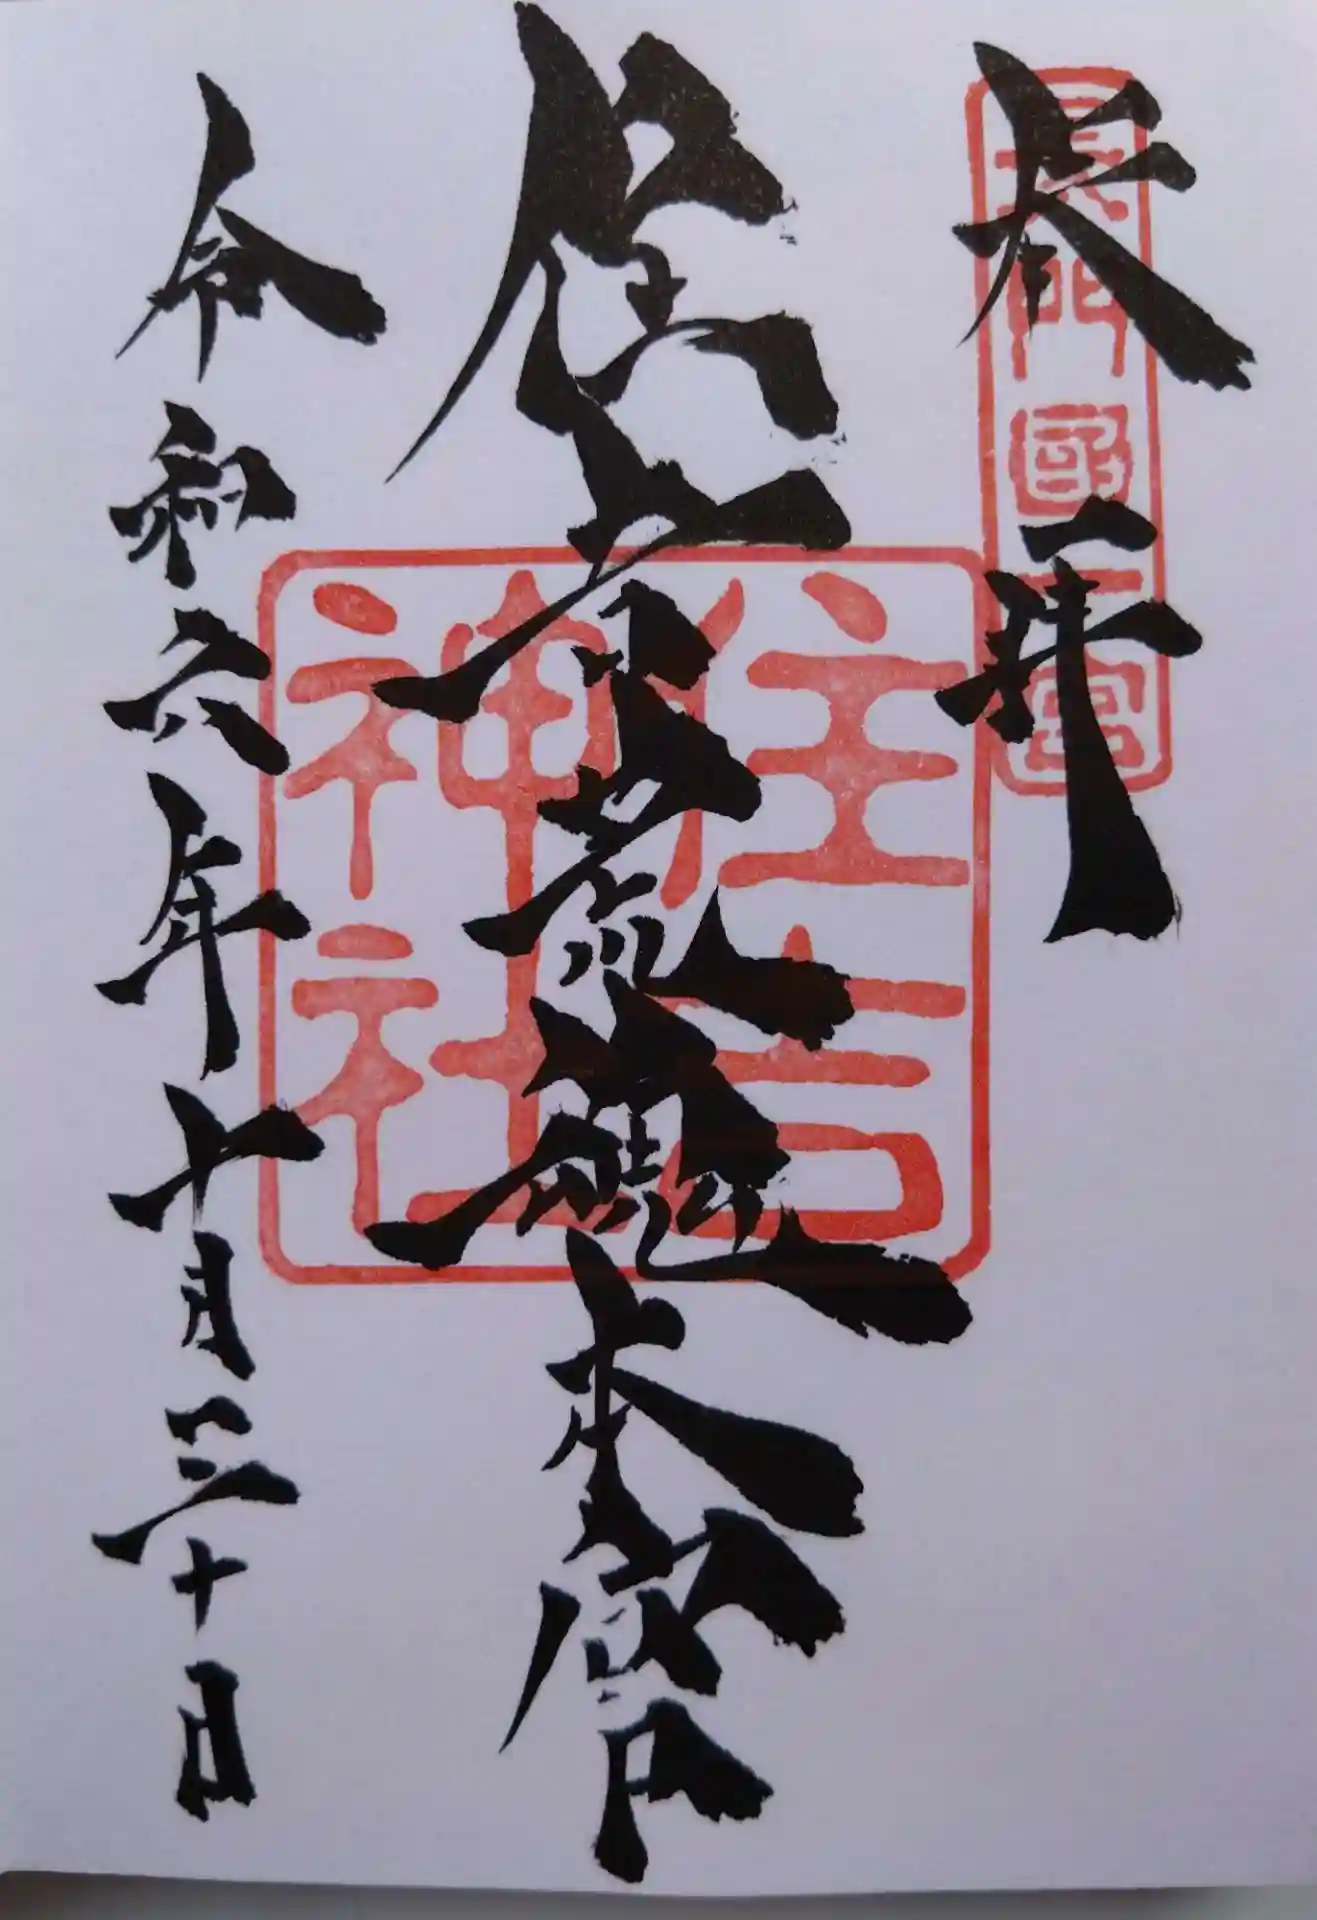 奉拝
長門國一宮
住吉荒魂本宮
住吉
神社
令和六年十月三十日